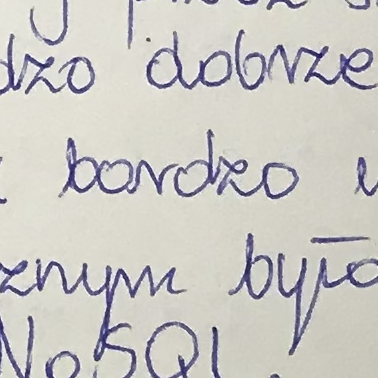 dzo dobrze
bardzo
znym była
NoSQL.